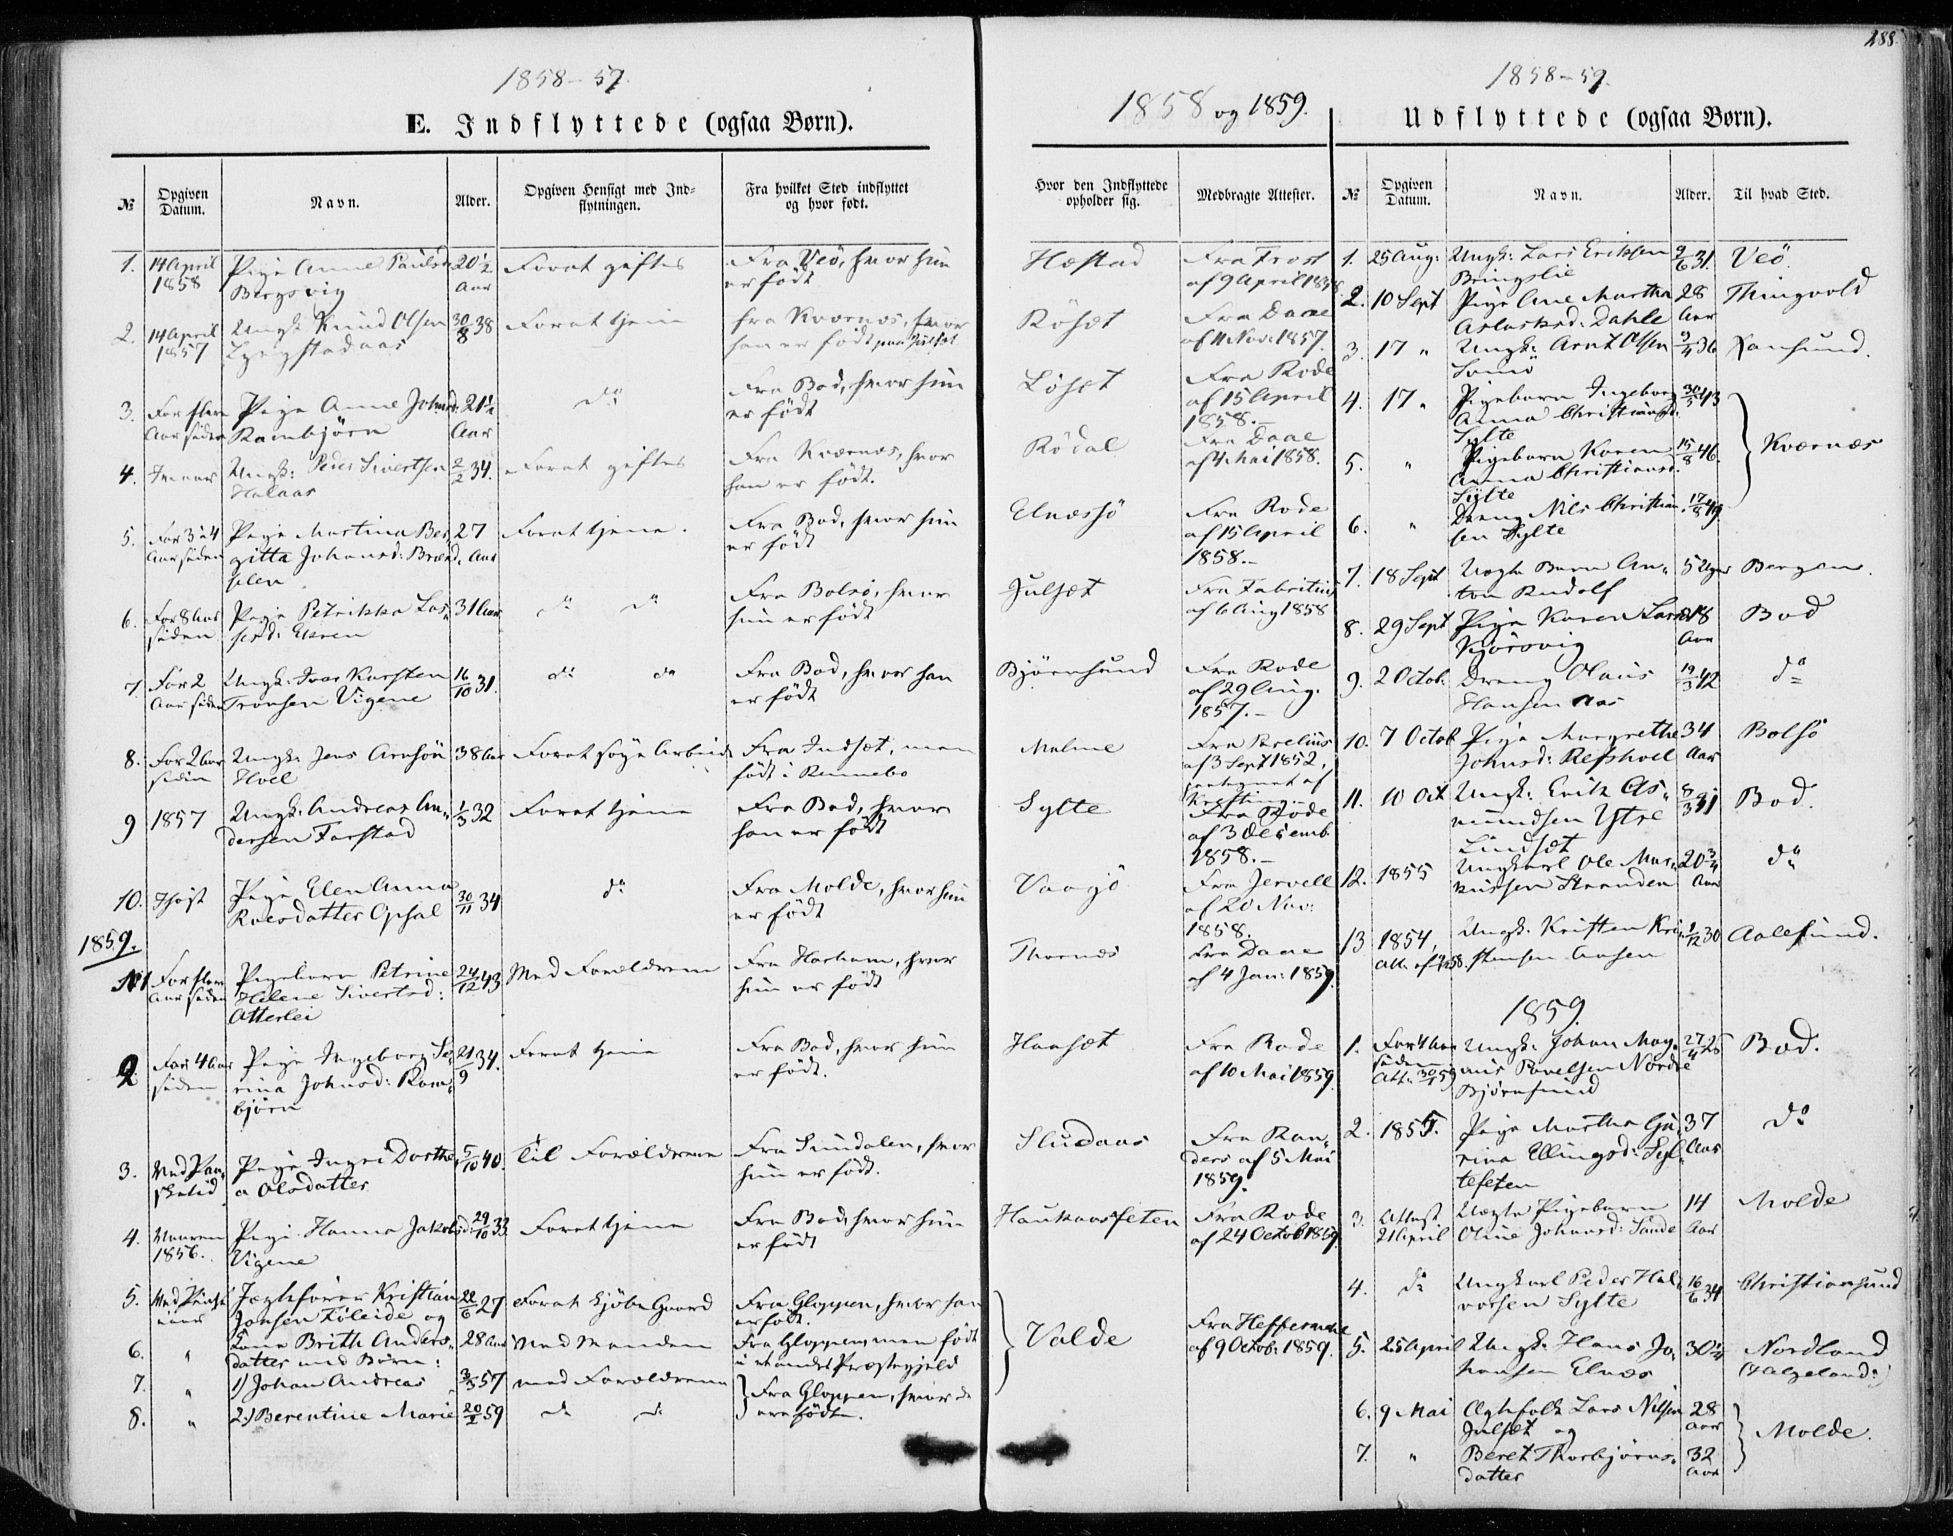 188.
1858-59.
E. Indflyttede (ogsaa Børn).
№ | Opgiven Datum. | Navn. | Alder. | Opgiven Hensigt med Indflytningen. | Fra hvilket Sted indflyttet og hvor født.
1. 14 April Pige Anne Paulsd: 20 1/2 Forat giftes Fra Veø, hvor hun
1858 Bergsvig Aar er født
2. 14 April Ungk: Knud Olsen 30/8 38 Forat tjene fra Kvernæs, hvor
1857 han er født
3. For flere Pige Anne Johnsd: 21 1/2 do Fra Bod, hvor hun
Aar siden Rambjørn Aar er født
4. Ungk: Peder Sivertsen 2/2 34. Forat giftes Fra Kvernæs, hvor
Halaas han er født.
5. For 3 à 4 Pige Martina Ber- 27 Forat tjene. Fra Bod, hvor hun
Aar siden gitta Johansd: Aar er født
6. For 8 Aar Pige Petrikke Las- 31 Aar do do Fra Bolsø, hvor
siden hun er født
7. For 2 Ungk: Iver Karsten 16/10 31. do do Fra Bod, hvor han
Aar siden Tronsen Vigene er født
8. For 2 Aar Ungk: Jens Arnsøn 38 Aar Forat søge Arbeide Fra Indset, men
siden Hoel født i Rennebo
9 1857 Ungk: Andreas An- 1/3 32 Forat tjene Fra Bod, hvor
dersen Farstad han er født
10. Høst Pige Elen Anna 30/11 34 do Fra Molde, hvor hun
Roesdatter Opsal er født
1859.
1 For flere Pigebarn Petrine 24/12 43 Med Forældrene Fra Harham, hvor
Aar siden Helene Sivertsd: hun er født
Atterlei
2 For 4 Aar Pige Ingeborg Se- 21/9 34. Forat tjene Fra Bod, hvor hun
siden rina Johnsd: Ram- er født.
bjørn
3. Ved Paa- Pige Ingri Dorthe- 5/10 40. Til Forældrene Fra Sundalen, hvor
sketid a Olsdatter hun er født.
4. Vaaren Pige Hanna Jakobsd: 29/10 33. Forat tjene Fra Bod, hvor hun
1856. Vigene er født
5. Jægtefører Kristian 22/6 27 Forat kjøbe Gaard Fra Gloppen, hvor han
Jonsen Føleide og er født.
6. " Kone Brith Anders- 28 Aar Med Manden Fra Gloppen, men født
datter med Børn: i et andet Præstegjeld
7. " 1) Johan Andreas 57 med Forældrene Fra Gloppen, hvor de
8. " 2) Berentine Marie 59 do do ere fødte.
1858 og 1859.
Hvor den Indflyttede opholder sig. | Medbragte Attester.
Hestad Fra Frost
af 9 April 1858
Røsæt Fra Daae
af 11 Nov: 1857.
Løset Fra Rode
af 15 April
1858.-
Rødal Fra Daae
af 4 Mai 1858.
Elnæssø Fra Rode
af 15 April
1858.-
Julsæt Fra Fabritius
af 6 Aug 1858
Bjørnsund Fra Rode
af 29 Aug.
1857.-
Malme Fra Parelius
af 3 Sept 1852,
Sylte Fra Rode
af 3 Desemb
1858.-
Vaagø Fra Jervell
af 20 Nov:
1858.
Thornæs Fra Daae
af 4 Jan: 1859.
Haasæt Fra Rode
af 10 Mai 1859.
Sludaas Fra Ran-
ders af 5 Mai
1859.
Haukaasseten Fra Rode
af 24 Octob 1859.
Valde Fra Heffermehl
af 9 Octob: 1859.
1858-59.
Udflyttede (ogsaa Børn).
№ | Opgiven Datum. | Navn. | Alder. | Til hvad Sted.
1. 25 Aug: Ungk: Lars Eriksen 9/6 31. Veø.
Bringslie
2. 10 Sept Pige Ane Martha 28 Thingvold
Aslaksd: Dahle Aar
3. 17 " Ungk: Arnt Olsen 9/4 36 Xansund.
4. 17 " Pigebarn Ingeborg 30/5 43
Anna Christiansd:
Sylte
5. " Pigebarn Karen 15/8 46. Kvernæs
Anna Christiansd.
Sylte
6. " Dreng Nils Christian- 17/8 49.
sen Sylte
7. 18 Sept Uægte Barn An- 5 Uger Bergen.
ton Rudolf
8. 29 Sept Pige Karen Larsd: 18 Bod
Kjørsvig Aar
9. 2 Octob: Dreng Olaus 19/3 42 do
Hansen Aas
10. 7 Octob Pige Margrethe 34 Bolsø
Johnsd: Refshoel Aar
11. 10 Oct Ungk: Erik As- 8/3 41 Bod.
mundsen Ytre
Lindset
12. 1855 Ungkarl Ole Mar- 20 3/4 do
kussen Stranden Aar
13 1854, Ungk: Kristen Kri- 1/12 30 Aalesund.
stensen Aasen
1859.
1. For 4 Aar Ungk: Johan Mag- 27/4 25 Bod.
siden nus Povelsen Nordre
Att: 30/1 59 Bjørnsund
2. 1855. Pige Martha Gu- 37 do
rina Ellingsd: Syl- Aar
teseten
3. Attest Uægte Pigebarn 14 Molde
21 April Oline Johansd: Sande Aar
4. do Ungkarl Peder Hal- 16/6 34 Christiansund
vorsen Sylte
5. 25 April Ungk: Hans Jo- 30 1/4 Nordland
hansen Elnæs (Helgeland)
6. 9 Mai Ægtefolk Lars Nilsen 28
Julset og Aar Molde.
7. " Beret Thorbjørns- 32
datter Aar